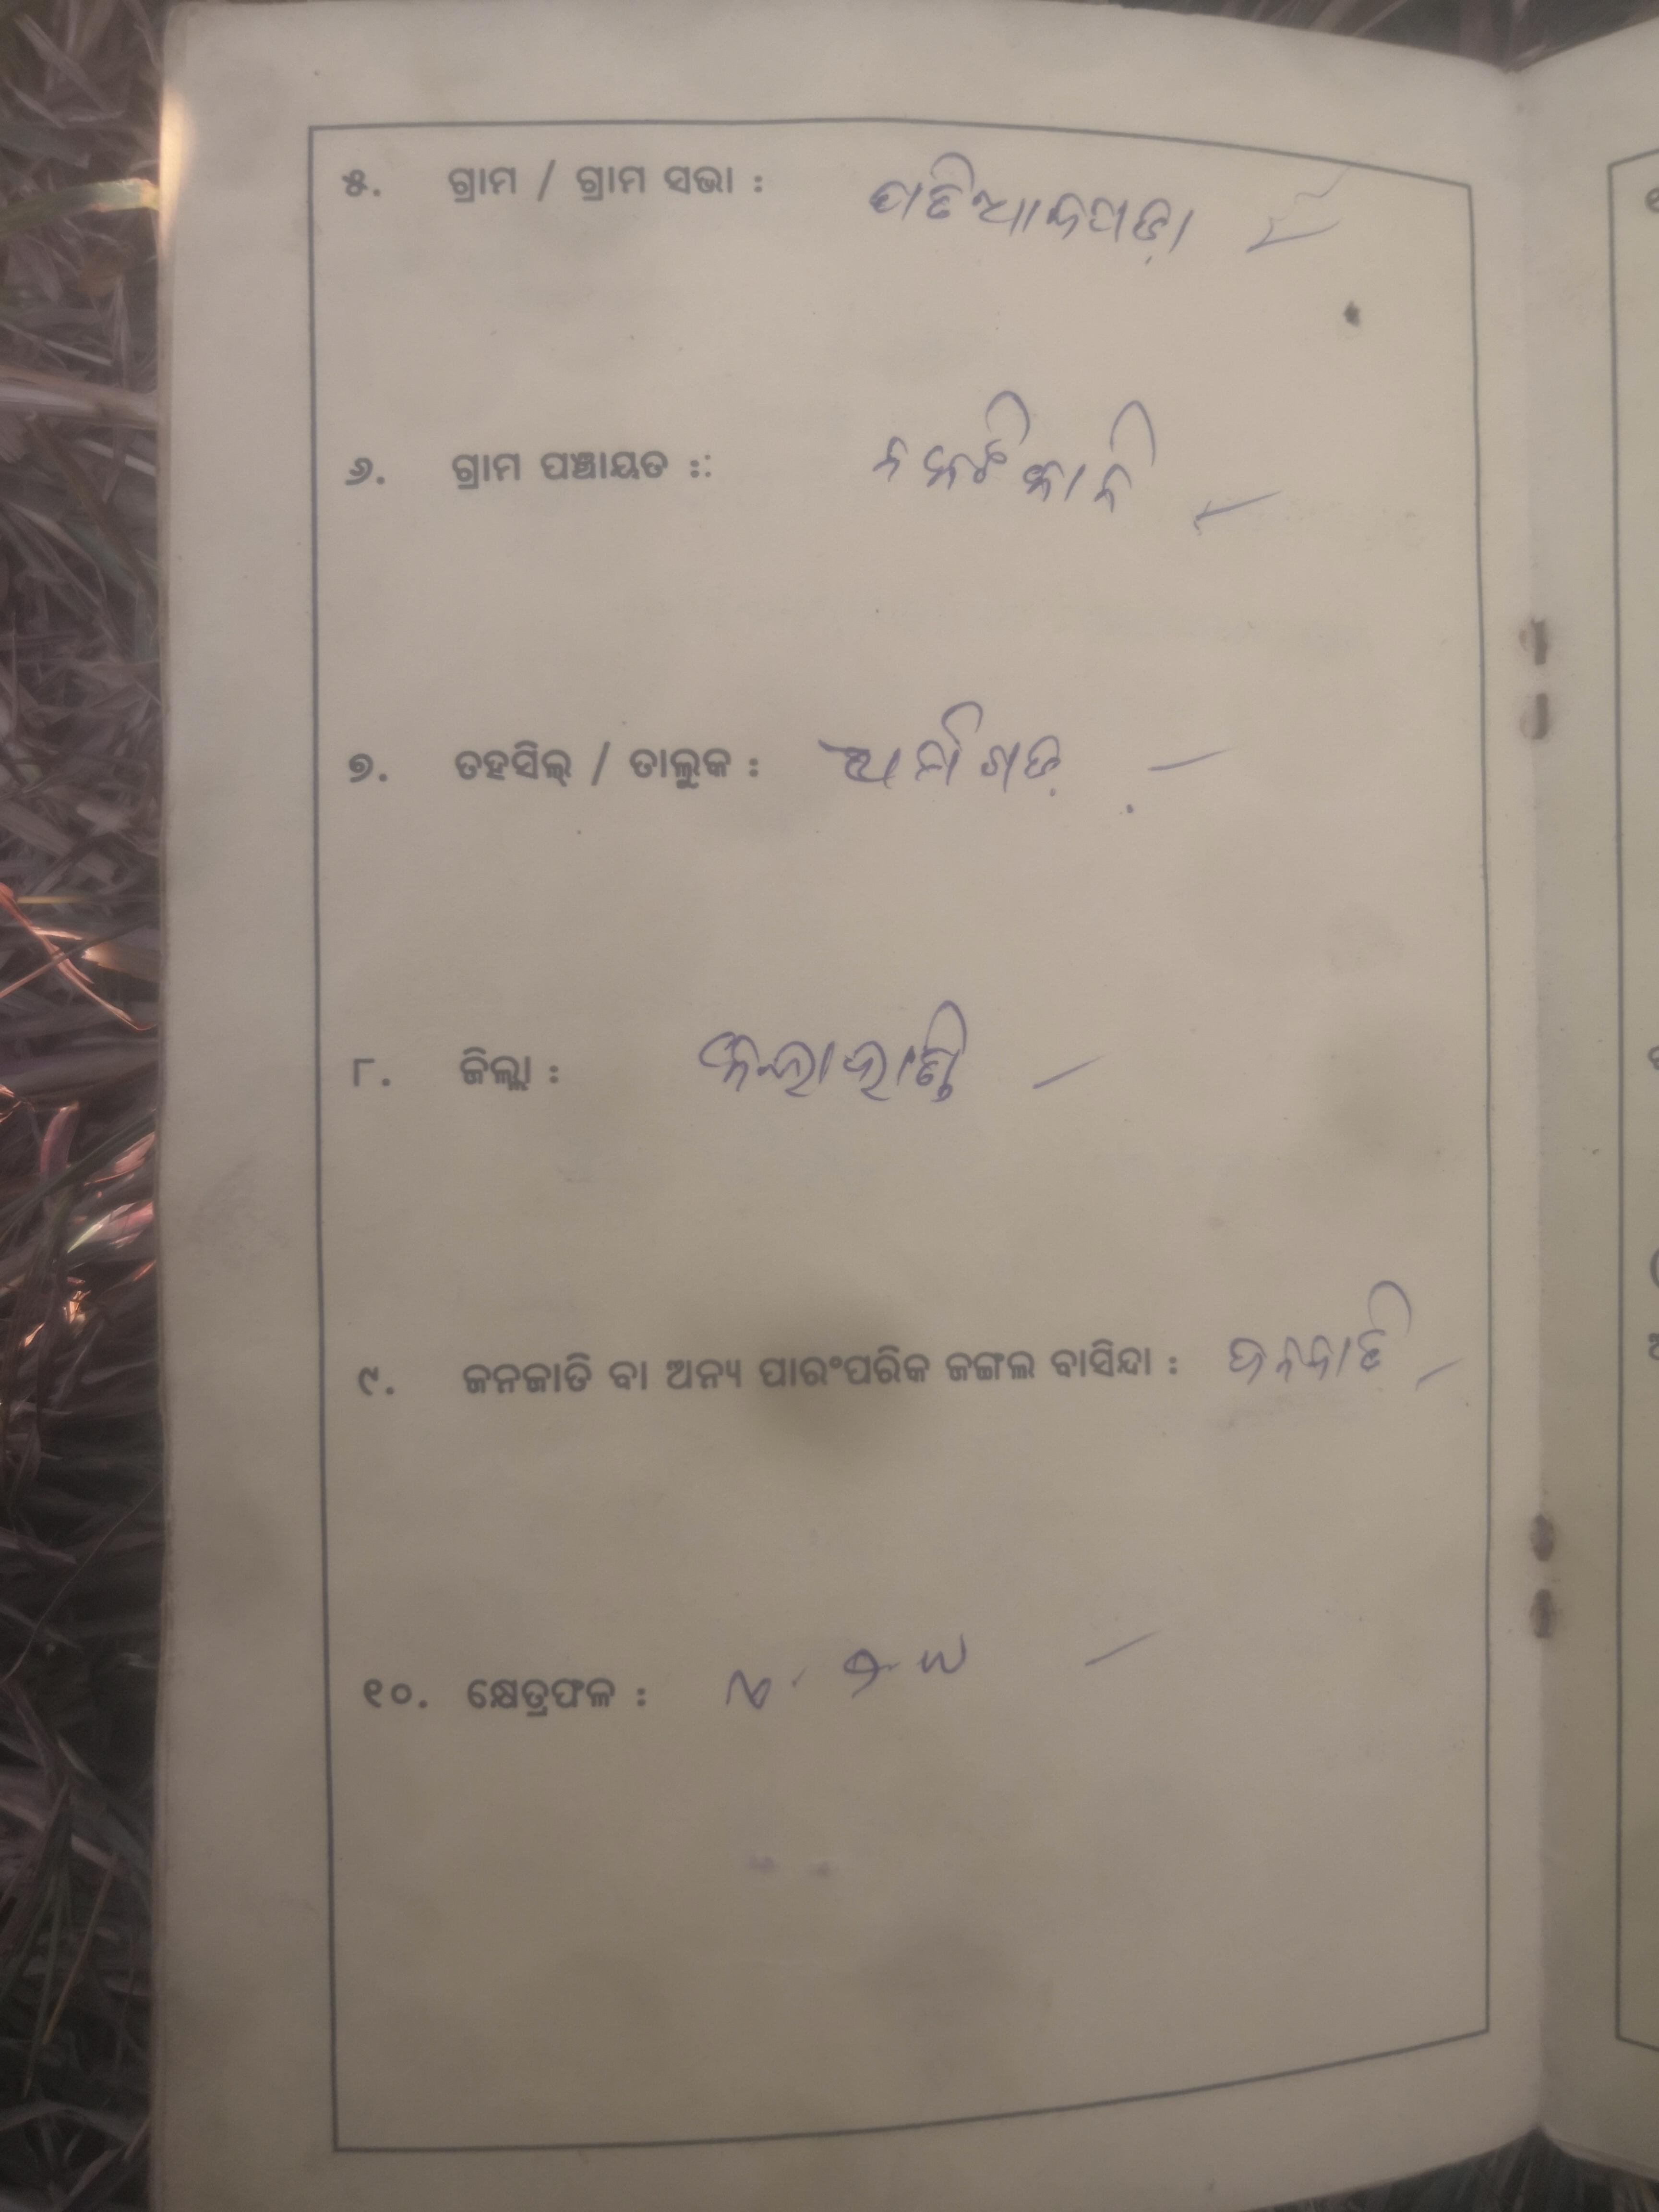 ୫. ଗ୍ରାମ / ଗ୍ରାମ ସଭା : ପଟିଆଳପଡ଼ା
୬. ଗ୍ରାମ ପଞ୍ଚାୟତ ::
୭. ତହସିଲ୍ / ତାଲୁକ :
୮. ଜିଲ୍ଲା : କଳାହାଣ୍ଡି
୯. ଜନଜାତି ବା ଅନ୍ୟ ପାରଂପରିକ ଜଙ୍ଗଲ ବାସିନ୍ଦା : ଜନଜାତି
୧୦. କ୍ଷେତ୍ରଫଳ :